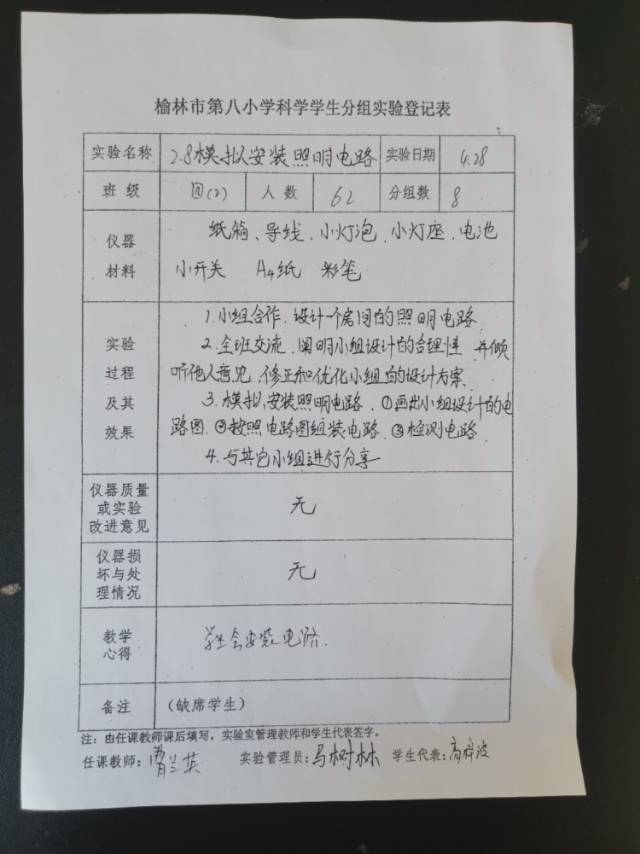 榆林市第八小学科学学生分组实验登记表
实验名称 2.8模拟安装照明电路 实验日期 4.28
班级 四(2) 人数 62 分组数 8
仪器材料 纸箱、导线、小灯泡、小灯座、电池
小开关 A4纸 彩笔
实验过程及其效果 1.小组合作.设计一个房间的照明电路.
2.全班交流.阐明小组设计的合理性 并倾
听他人意见.修正和优化小组的设计方案.
3.模拟安装照明电路.①画出小组设计的电
路图.②按照电路图组装电路.③检测电路.
4.与其它小组进行分享
仪器质量或实验改进意见 无
仪器损坏与处理情况 无
教学心得 学生会安装电路.
备注 (缺席学生)
注:由任课教师课后填写,实验室管理教师和学生代表签字。
任课教师:曹兰英 实验管理员:马树林 学生代表:高梓波